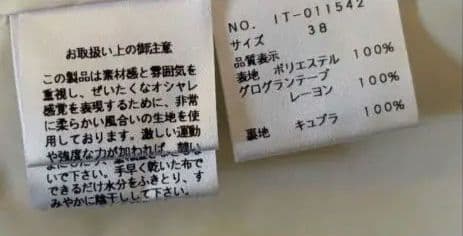 お取扱い上の御注意
この製品は素材感と雰囲気を
重視し、ぜいたくなオシャレ
感覚を表現するために、非常
に柔らかい風合いの生地を使
用しております。激しい運動
や強度な力が加われば、
いで下さい。手早く乾いた布で
できるだけ水分をふきとり、す
みやかに陰干しして下さい。
NO. IT-011542
サイズ
38
品質表示
表地 ポリエステル 100%
グログランテープ
レーヨン 100%
裏地 キュプラ 100%